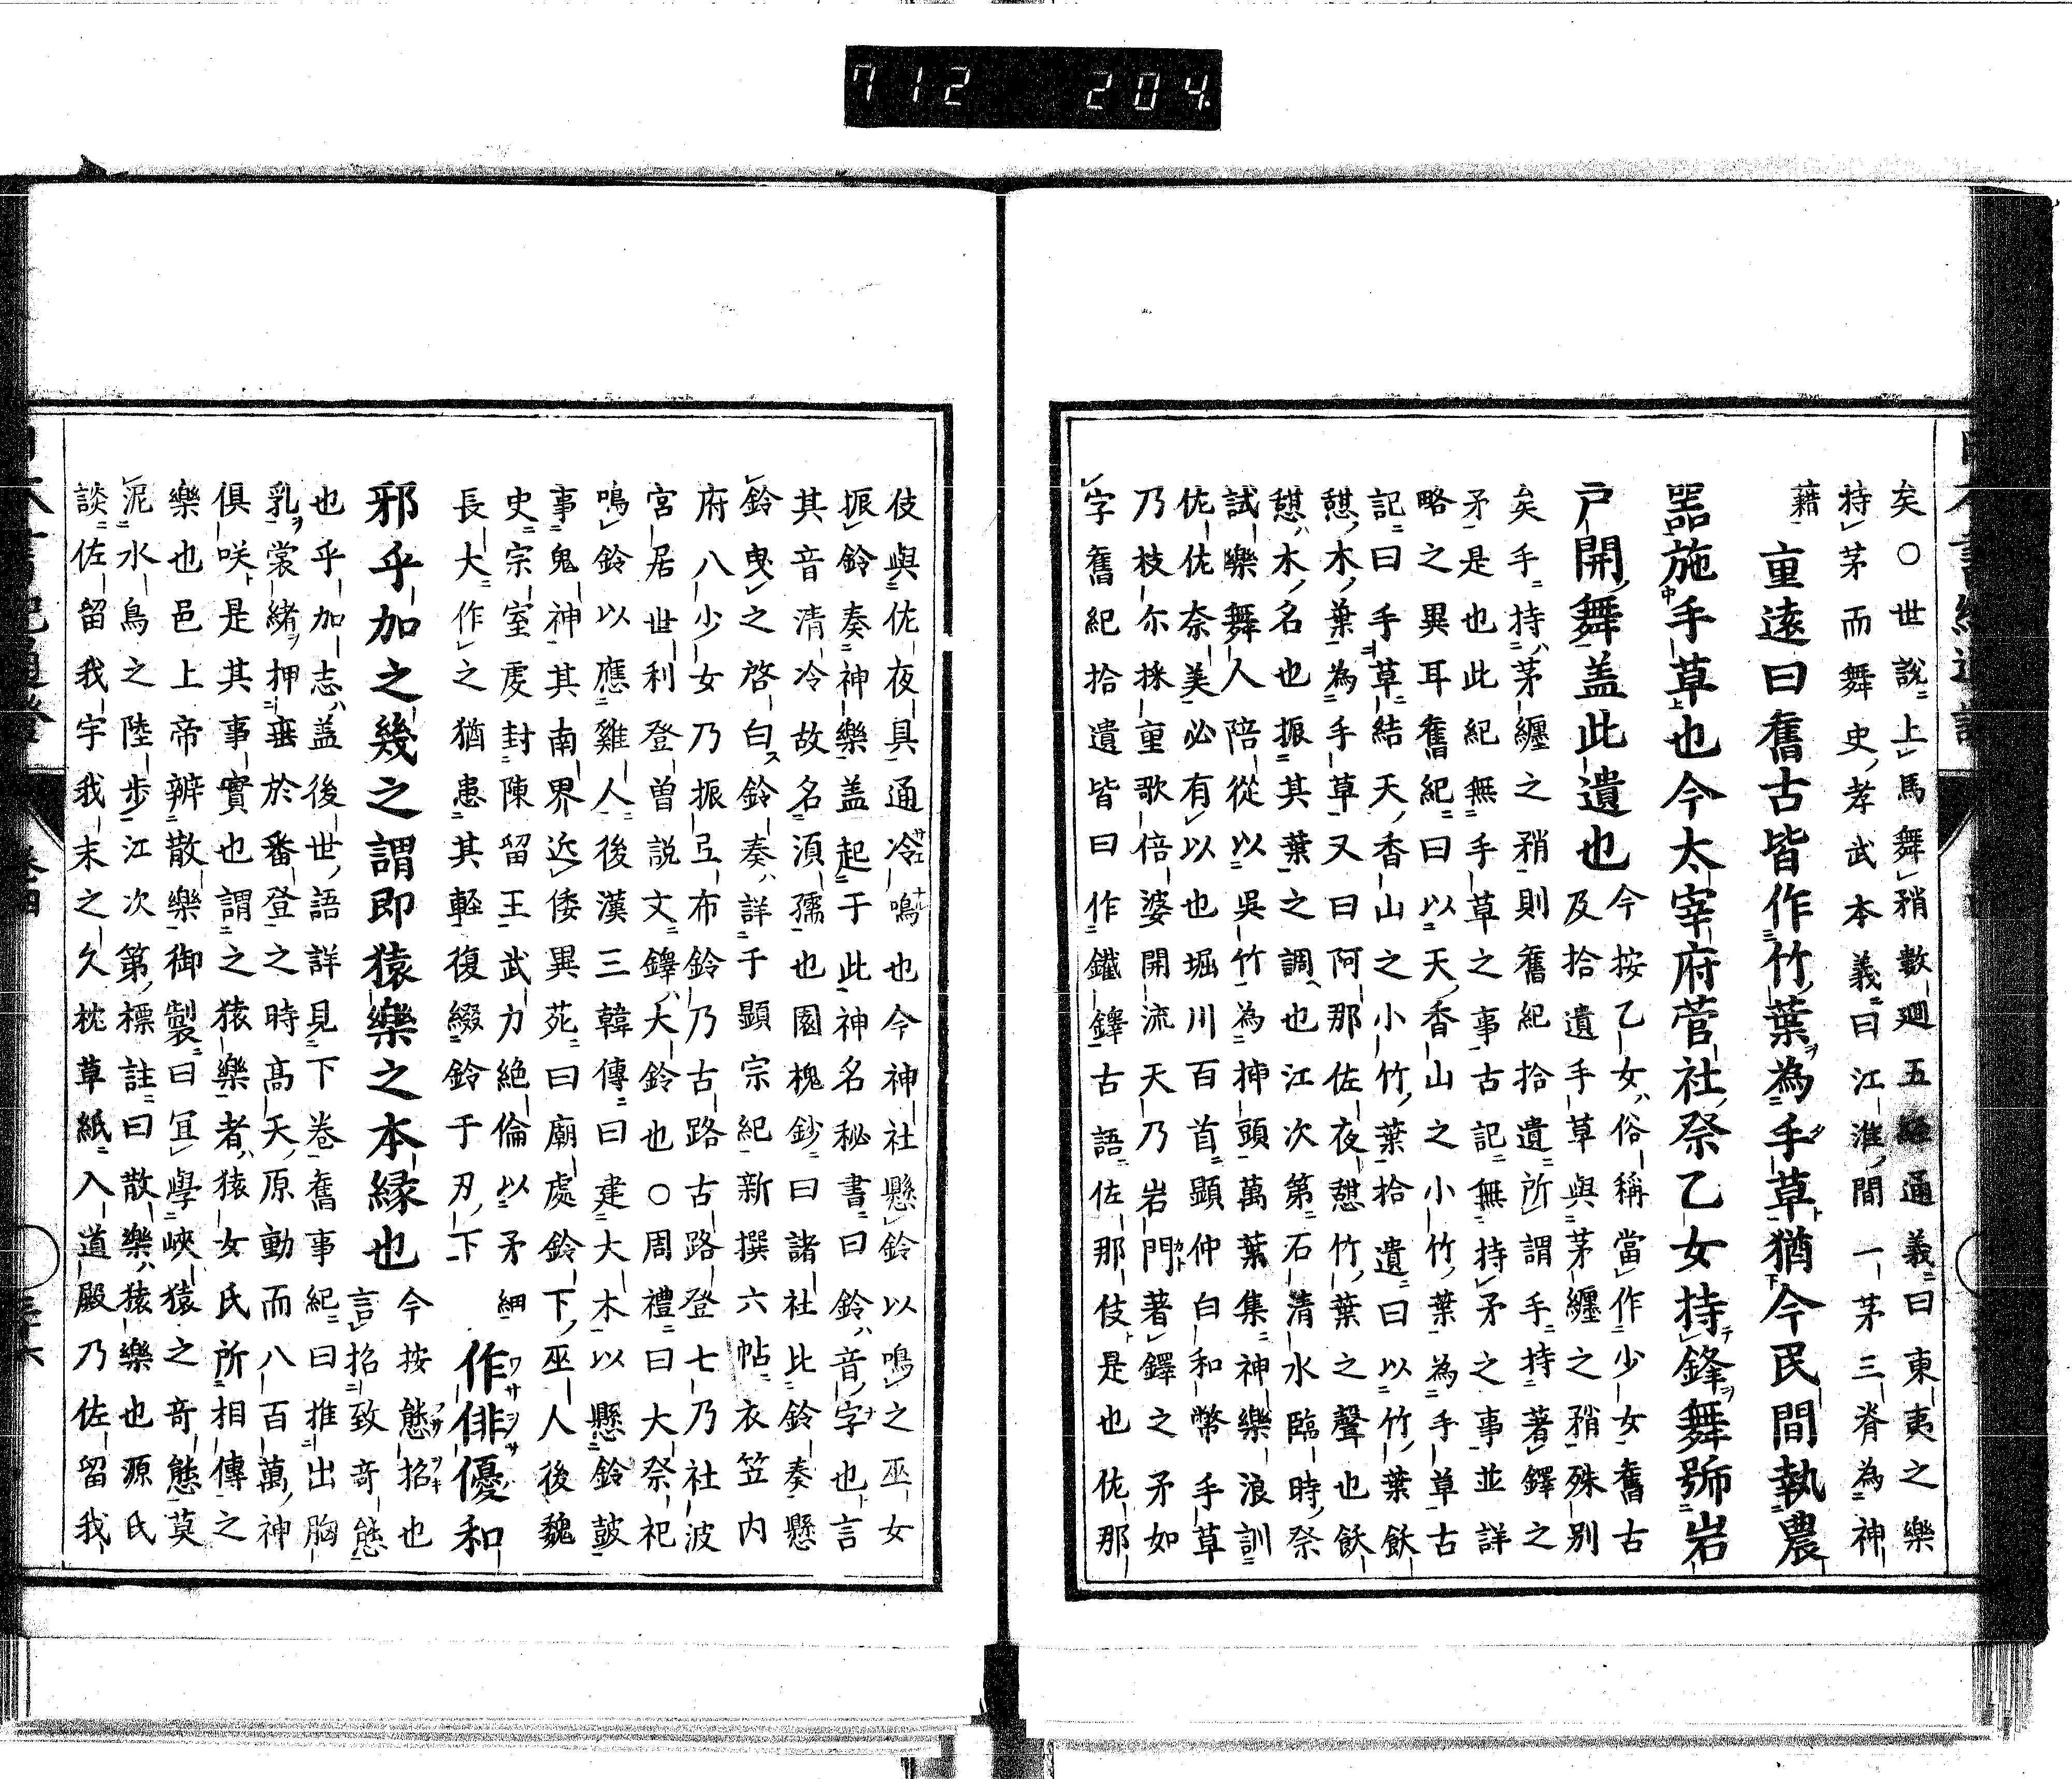 712 204
矣○世説上馬舞矟數廻五經通義曰東夷之樂
持茅而舞史孝武本義曰江淮間一茅三脊為神
藉
重遠曰舊古皆作竹葉為手草猶今民間執農
噐施手草也今太宰府菅社祭乙女持鋒舞號岩
戸開舞盖此遺也
今按乙女俗稱當作少女舊古
及拾遺手草與茅纏之矟殊别
矣手持茅纏之矟則舊紀拾遺所謂手持著鐸之
矛是也此紀無手草之事古記無持矛之事並詳
略之異耳舊紀曰以天香山之小竹葉為手草古
記曰手草結天香山之小竹葉拾遺曰以竹葉飫
憇木葉為手草又曰阿那佐夜憇竹葉之聲也飫
憇木名也振其葉之調也江次第石清水臨時祭
試樂舞人陪從以吳竹為挿頭萬葉集神樂浪訓
佐佐奈美必有以也堀川百首顕仲白和幣手草
乃枝尓採重歌倍婆開流天乃岩門著鐸之矛如
字舊紀拾遺皆曰作鐵鐸古語佐那伎是也佐那
伎與佐夜具通冷鳴也今神社懸鈴以鳴之巫女
振鈴奏神樂盖起于此神名秘書曰鈴音字也言
其音清冷故名湏孺也園槐鈔曰諸社比鈴奏懸
鈴曳之啓白鈴奏詳于顕宗紀新撰六帖衣笠内
府八少女乃振弖布鈴乃古路古路登七乃社波
宮居世利登曽説文鐸大鈴也○周禮曰大祭祀
鳴鈴以應雞人後漢三韓傳曰建大木以懸鈴鼓
事鬼神其南界近倭異苑曰廟處鈴下巫人後魏
史宗室虔封陳留王武力絶倫以矛細
長大作之猶患其輕復綴鈴于刃下
作俳優和
邪乎加之幾之謂即猿樂之本縁也
今按態招也
言招致竒態
也乎加志盖後世語詳見下卷舊事紀曰推出胸
乳裳緒押垂於番登之時高天原動而八百萬神
俱咲是其事實也謂之猿樂者猿女氏所相傳之
樂也邑上帝辨散樂御製曰冝學峽猿之竒態莫
泥水鳥之陸歩江次第標註曰散樂猿樂也源氏
談佐留我宇我末之久枕草紙入道殿乃佐留我